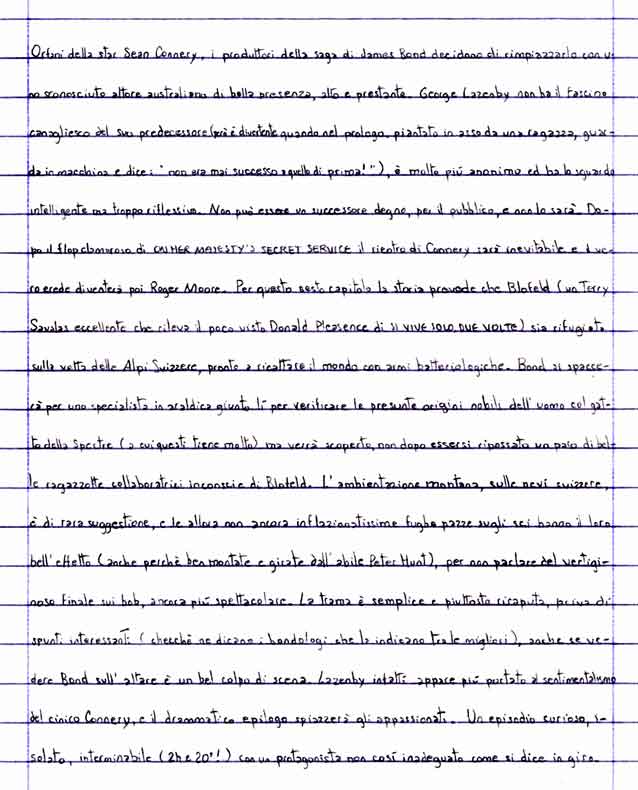 Orfani della star Sean Connery, i produttori della saga di James Bond decidono di rimpiazzarlo con u
no sconosciuto attore australiano di bella presenza, alto e prestante. George Lazenby non ha il fascino
canagliesco del suo predecessore (però è divertente quando nel prologo, piantato in asso da una ragazza, guar-
da in macchina e dice: "non era mai successo a quello di prima!"), è molto più anonimo ed ha lo sguardo
intelligente ma troppo riflessivo. Non può essere un successore degno, per il pubblico, e non lo sarà. Do-
po il flop clamoroso di ON HER MAJESTY'S SECRET SERVICE il rientro di Connery sarà inevitabile e il ve-
ro erede diventerà poi Roger Moore. Per questo sesto capitolo la storia prevede che Blofeld (un Terry
Savalas eccellente che rileva il poco visto Donald Pleasence di SI VIVE SOLO DUE VOLTE) sia rifugiato
sulla vetta delle Alpi Svizzere, pronto a ricattare il mondo con armi batteriologiche. Bond si spacce-
rà per uno specialista in araldica giunto lì per verificare le presunte origini nobili dell'uomo col gat-
to della Spectre (a cui questi tiene molto) ma verrà scoperto, non dopo essersi ripassato un paio di bel-
le ragazzotte collaboratrici inconscie di Blofeld. L'ambientazione montana, sulle nevi svizzere,
è di rara suggestione, e le allora non ancora inflazionatissime fughe pazze sugli sci hanno il loro
bell'effetto (anche perchè ben montate e girate dall'abile Peter Hunt), per non parlare del vertigi-
noso finale sui bob, ancora più spettacolare. La trama è semplice e piuttosto risaputa, priva di
spunti interessanti (checchè ne dicano i bondologi che la indicano tra le migliori), anche se ve-
dere Bond sull'altare è un bel colpo di scena. Lazenby infatti appare più portato al sentimentalismo
del cinico Connery, e il drammatico epilogo spiazzerà gli appassionati. Un episodio curioso, i-
solato, interminabile (2h e 20'!) con un protagonista non così inadeguato come si dice in giro.